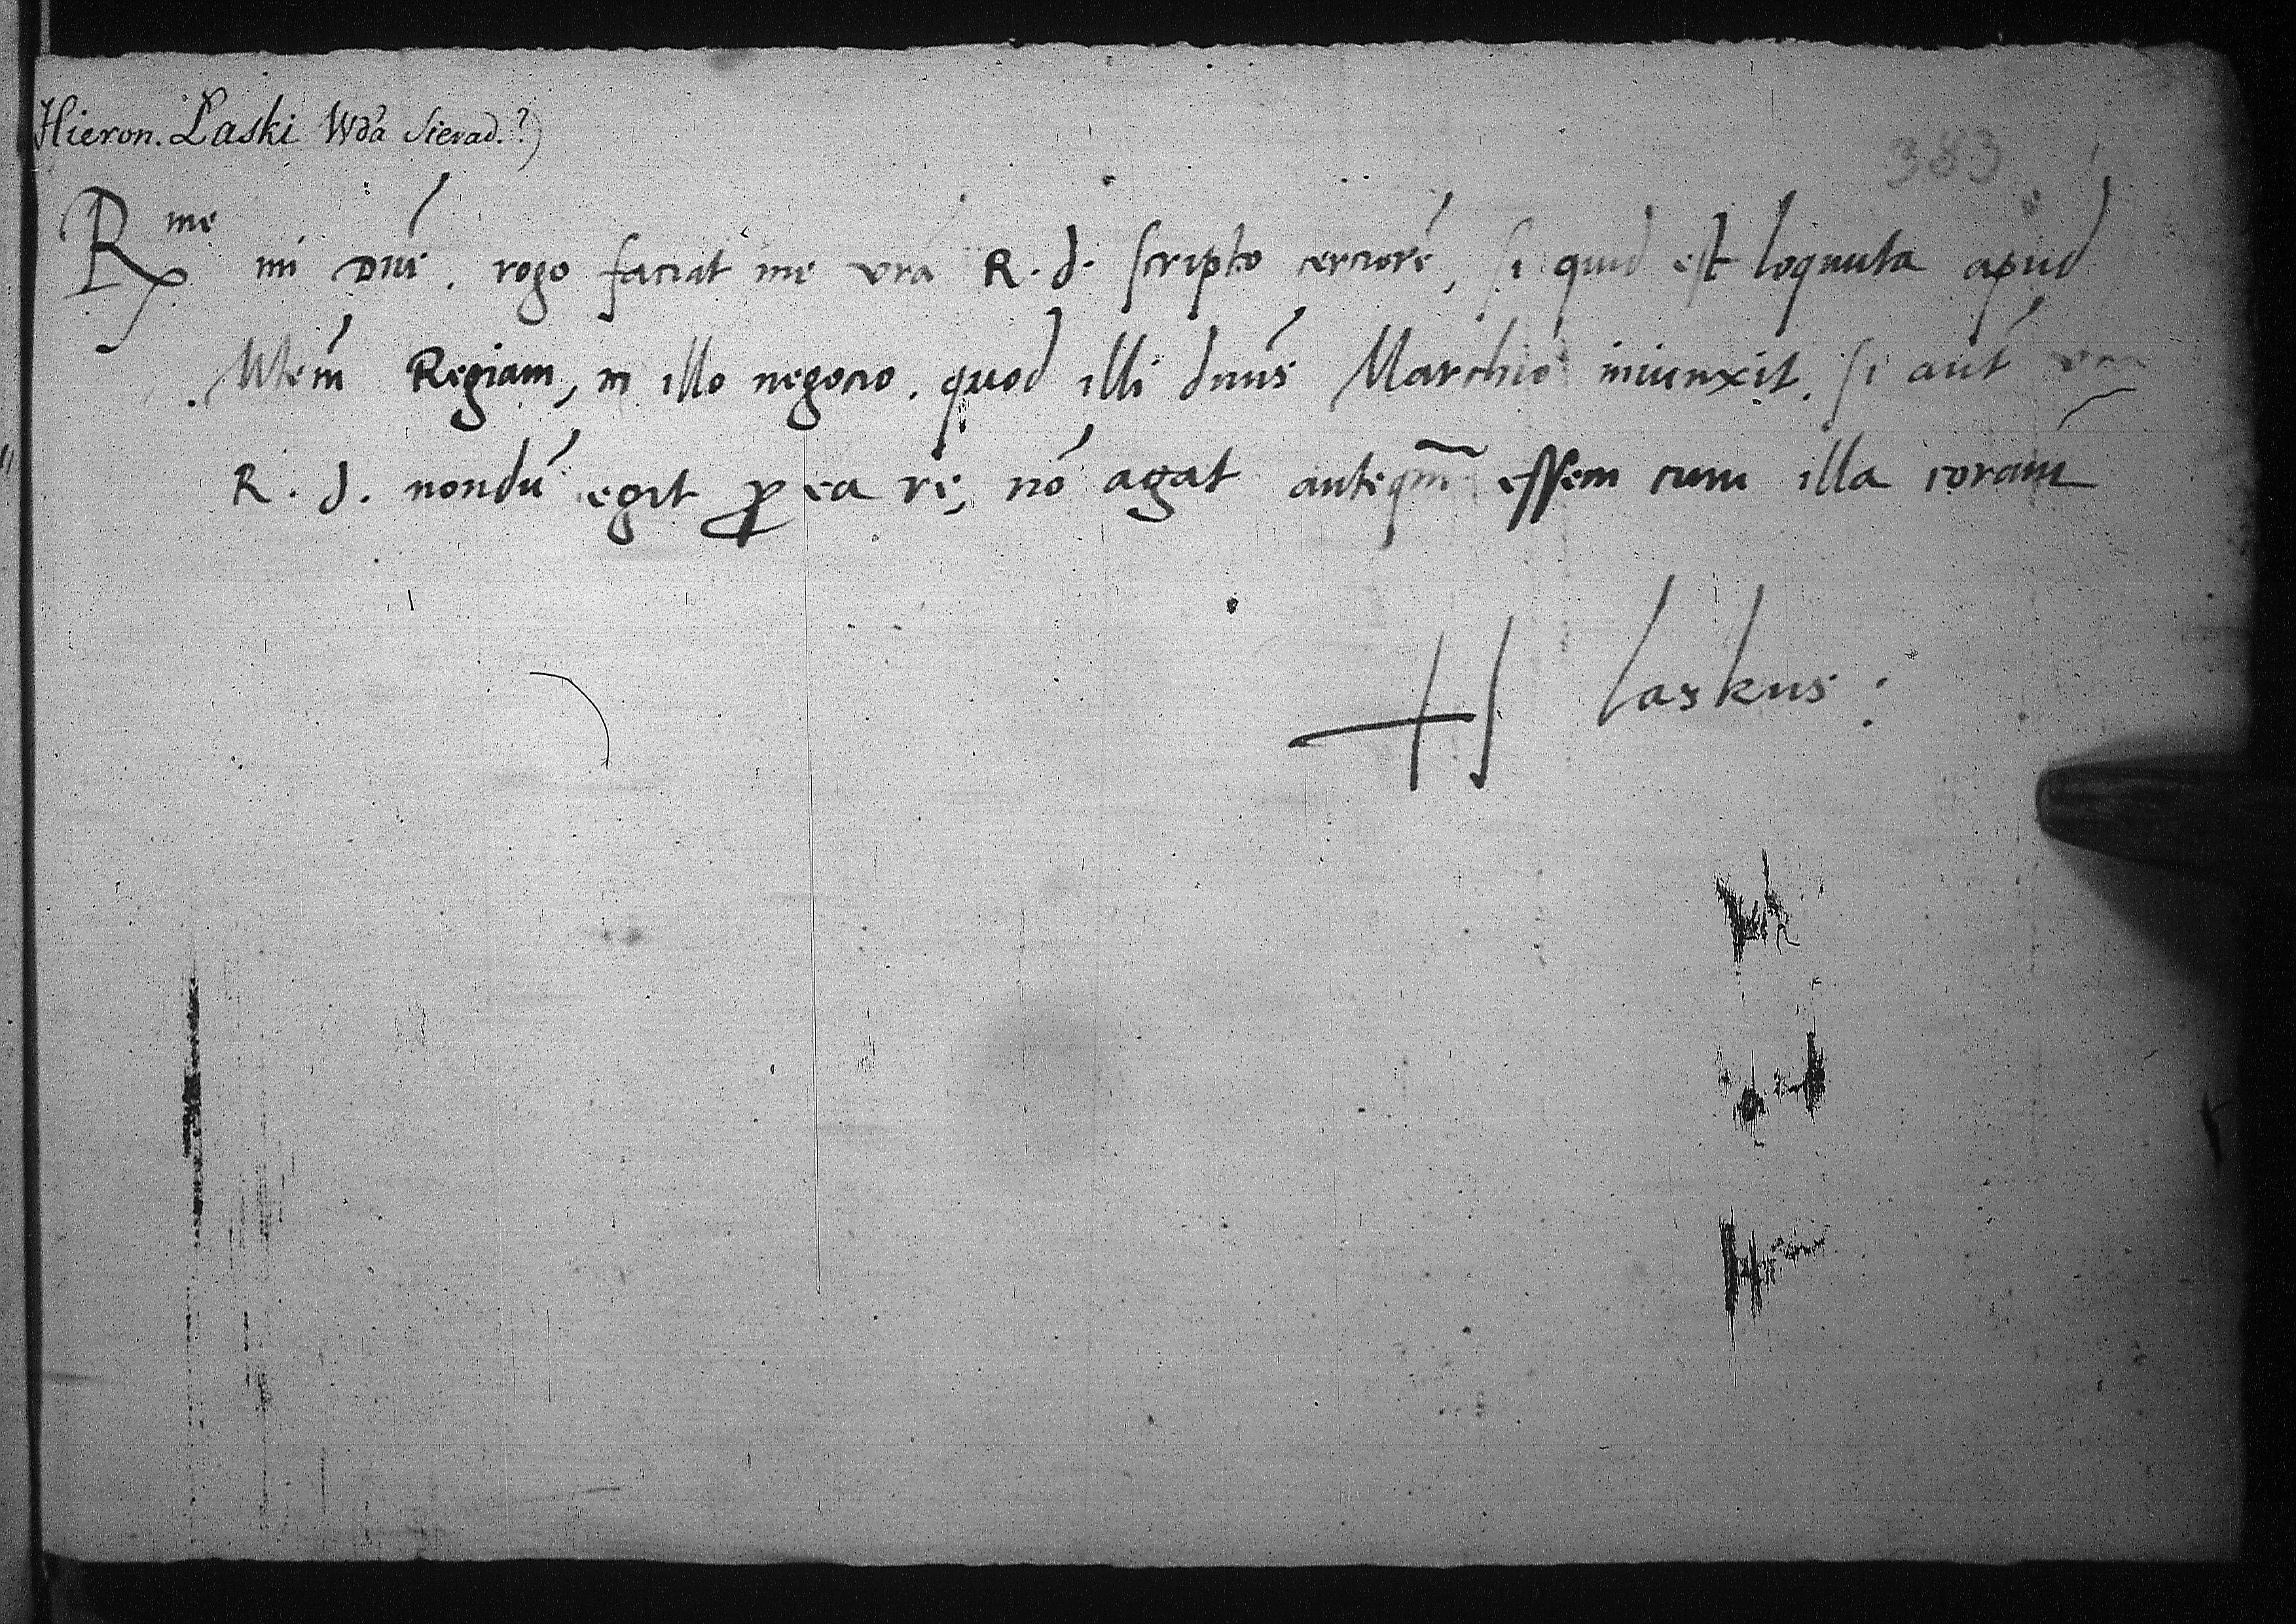 Hieron. Łaski Wda Sierad.?)
383
R me mi Dne. rogo faciat me vra R. d. scripto cerciore, si quid est loquuta apud
Mtem Regiam, in illo negocio. quod illi dnus Marchio iniunxit. si aut vra
R. d. nondu egit p ea re, no agat anteqm essem cum illa coram
H laskus: